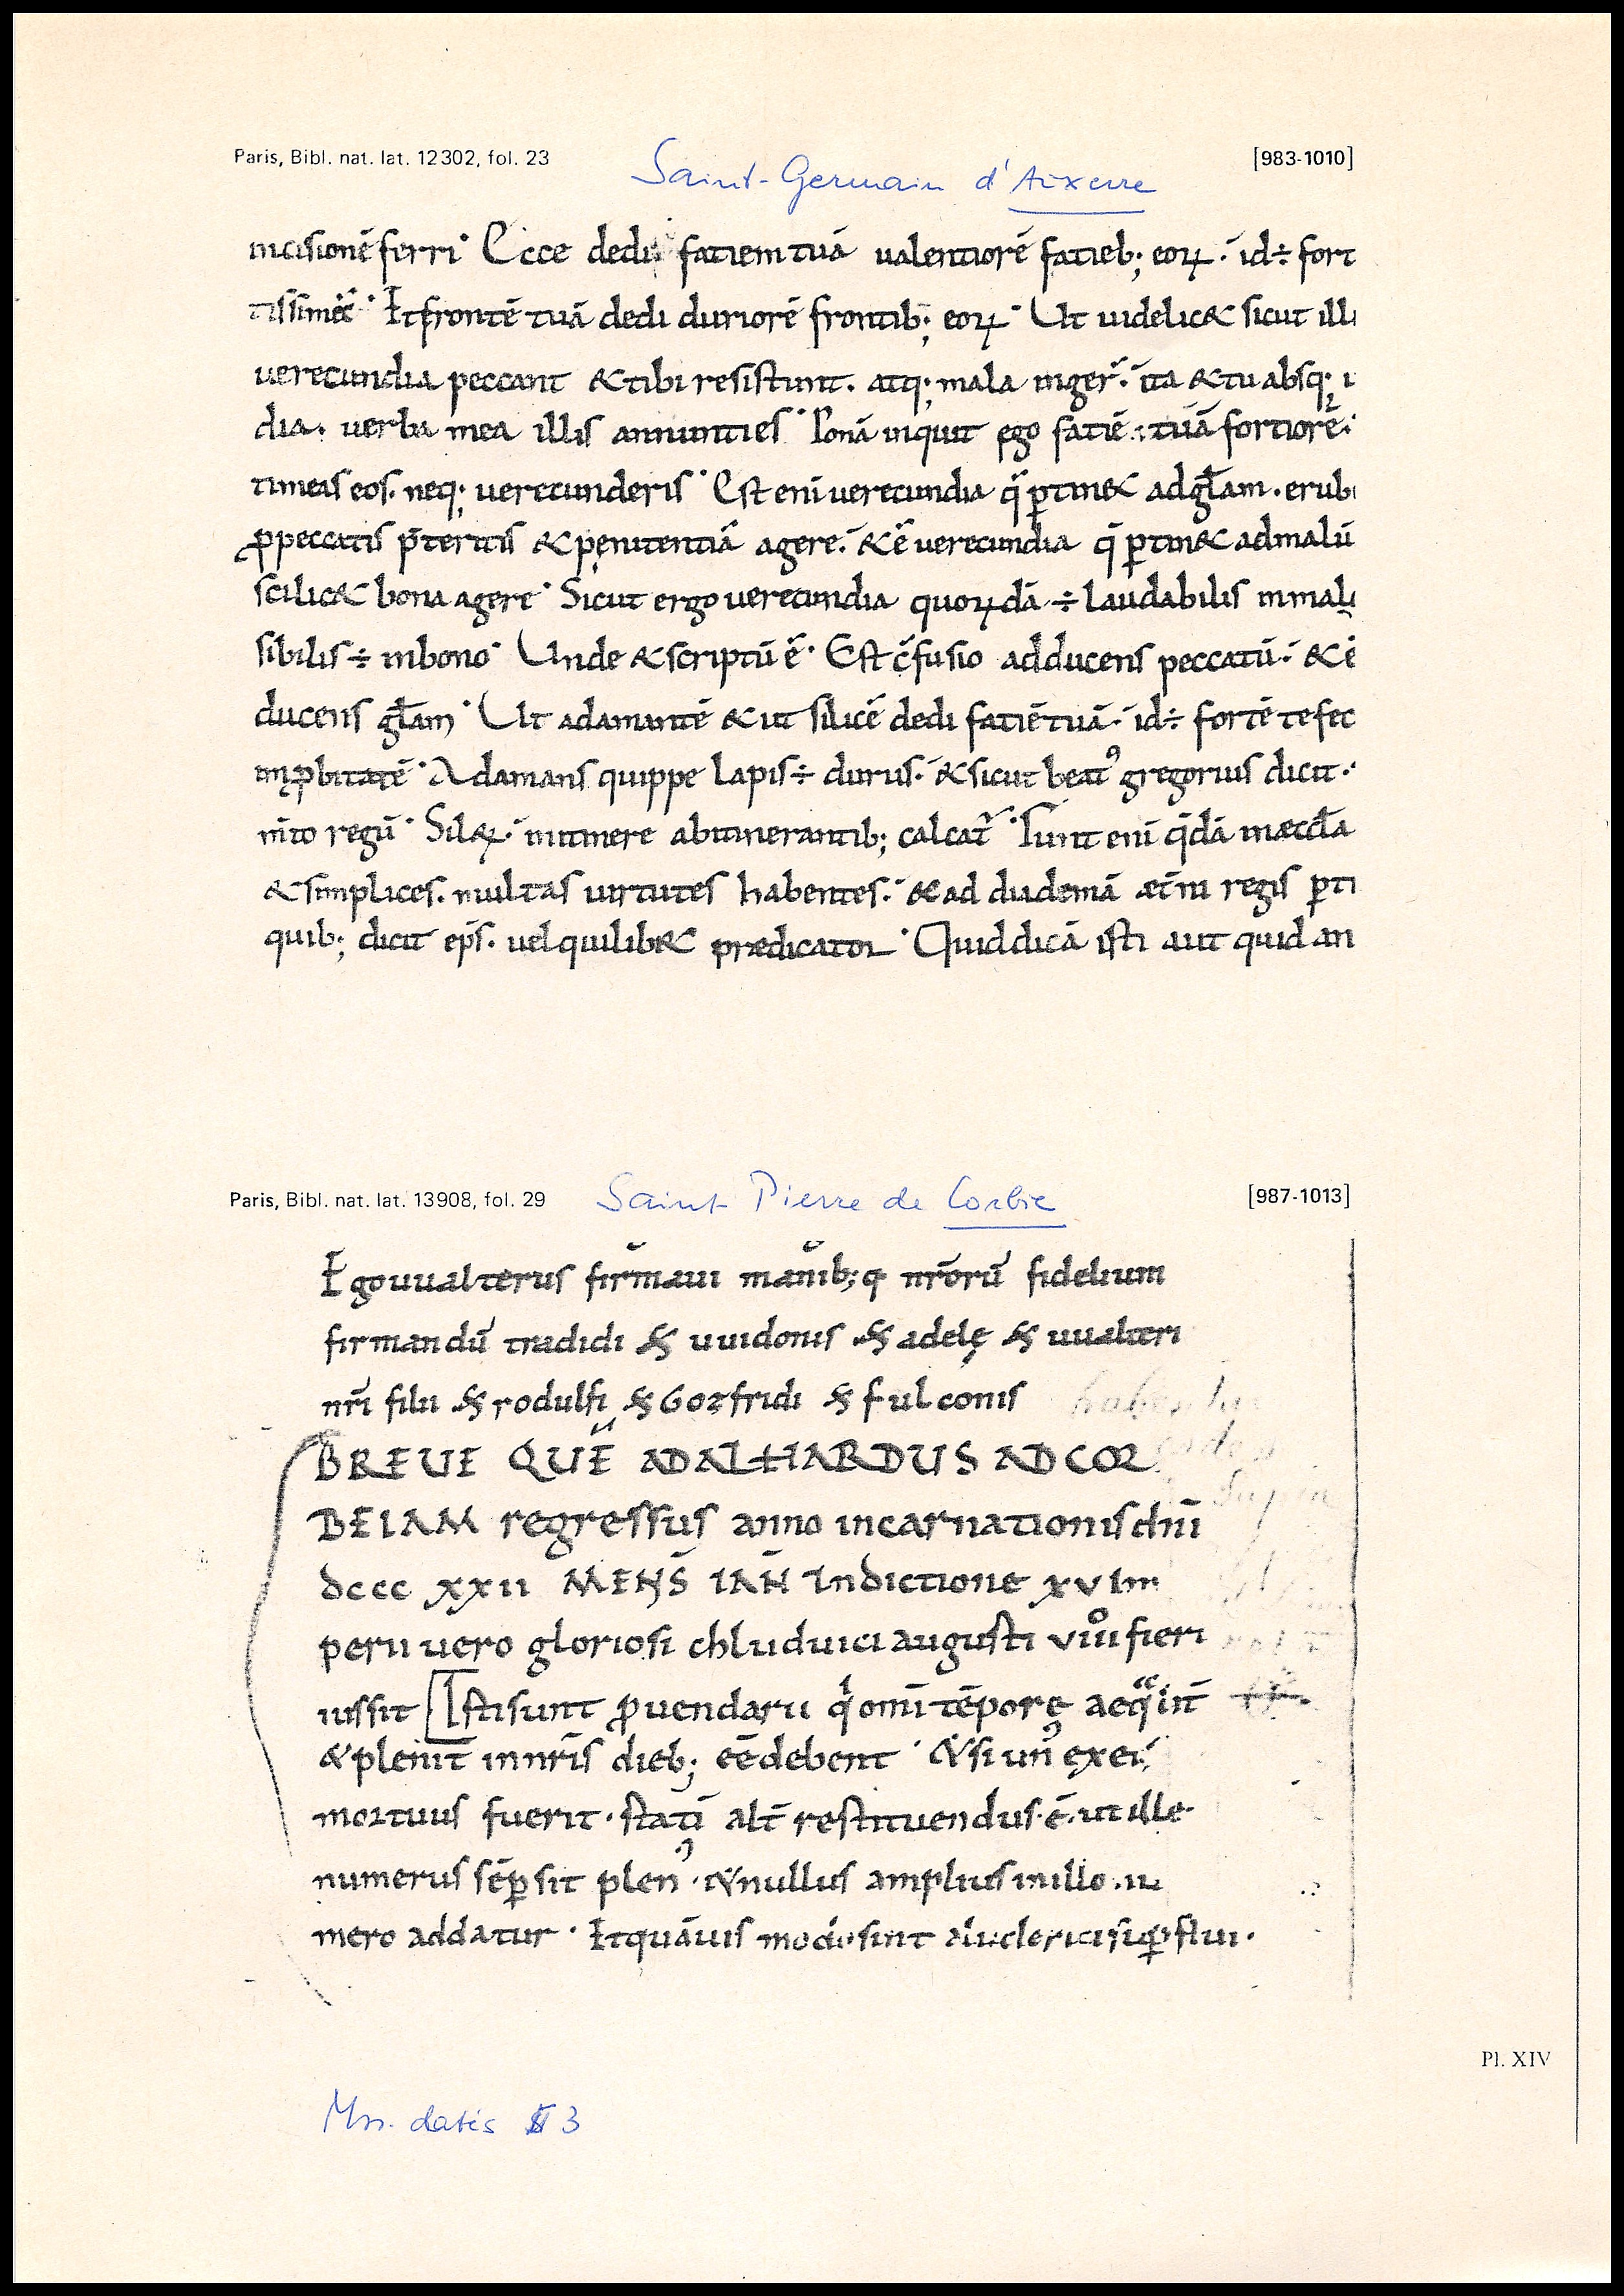 Paris, Bibl. nat. lat. 12302, fol. 23
Saint-Germain d'Auxerre
[983-1010]
incisionē ferri · Ecce dedi faciem tuā ualentiorē facieb; eoꝝ · id ÷ fort
tissimē · Et frontē tuā dedi duriorē frontib; eoꝝ · Ut uidelic& sicut illi
uerecundia peccant & tibi resistunt. atq; mala inger̄. ita & tu absq;
dia. uerba mea illis annunties · Ponā inquit ego fatiē tuā fortiorē
timeas eos. neq; uerecunderis · Est eni uerecundia q̄ ꝑtin& ad gl̄am. erub
ꝓ peccatis p̄teritis & pęnitentiā agere. & ē uerecundia q̄ ꝑtin& ad malū
scilic& bona agere · Sicut ergo uerecundia quoꝝdā ÷ laudabilis in mali
sibilis ÷ in bono · Unde & scriptū ē · Est c̄fusio adducens peccatū. & ē
ducens gl̄am · Ut adamantē & ut silicē dedi fatiē tuā. id ÷ fortē te fec
imꝓbitatē · Adamans quippe lapis ÷ durus. & sicut beatꝰ gregorius dicit.
regū · in itinere ab itinerantib; calcat̄ · Sunt eni q̄dā in æccl̄a
& simplices. multas uirtutes habentes. & ad diademā æt̄ni regis ꝑti
quib; dicit ep̄s. uel quilib& prædicator · Quid dicā isti aut quid an
Paris, Bibl. nat. lat. 13908, fol. 29
Saint-Pierre de Corbie
[987-1013]
Ego uualterus firmaui manib;q nr̄orū fidelium
firmandū tradidi & uuidonis & adelę & uualteri
nr̄i filii & rodulfi & Gozfridi & fulconis
BREUE QUĒ ADALHARDUS AD COR
BEIAM regressus anno incarnationis dn̄i
dccc xxii MENS̄ IAN̄ Indictione xv Im
perii uero gloriosi chluduici augusti viiii fieri
iussit Isti sunt ꝓuendarii q̄ omī tēpore aeq̄ int̄
& pleniт̄ in nr̄is dieb; eē debent · & si unꝰ ex ei
mortuus fuerit · statī alt̄ restituendus · ē. ut ille
numerus sēꝑ sit plenꝰ · & nullus amplius in illo. nu
mero addatur · Et quāuis modo sint clerici suꝑflui ·
Pl. XIV
Mss. datés 3